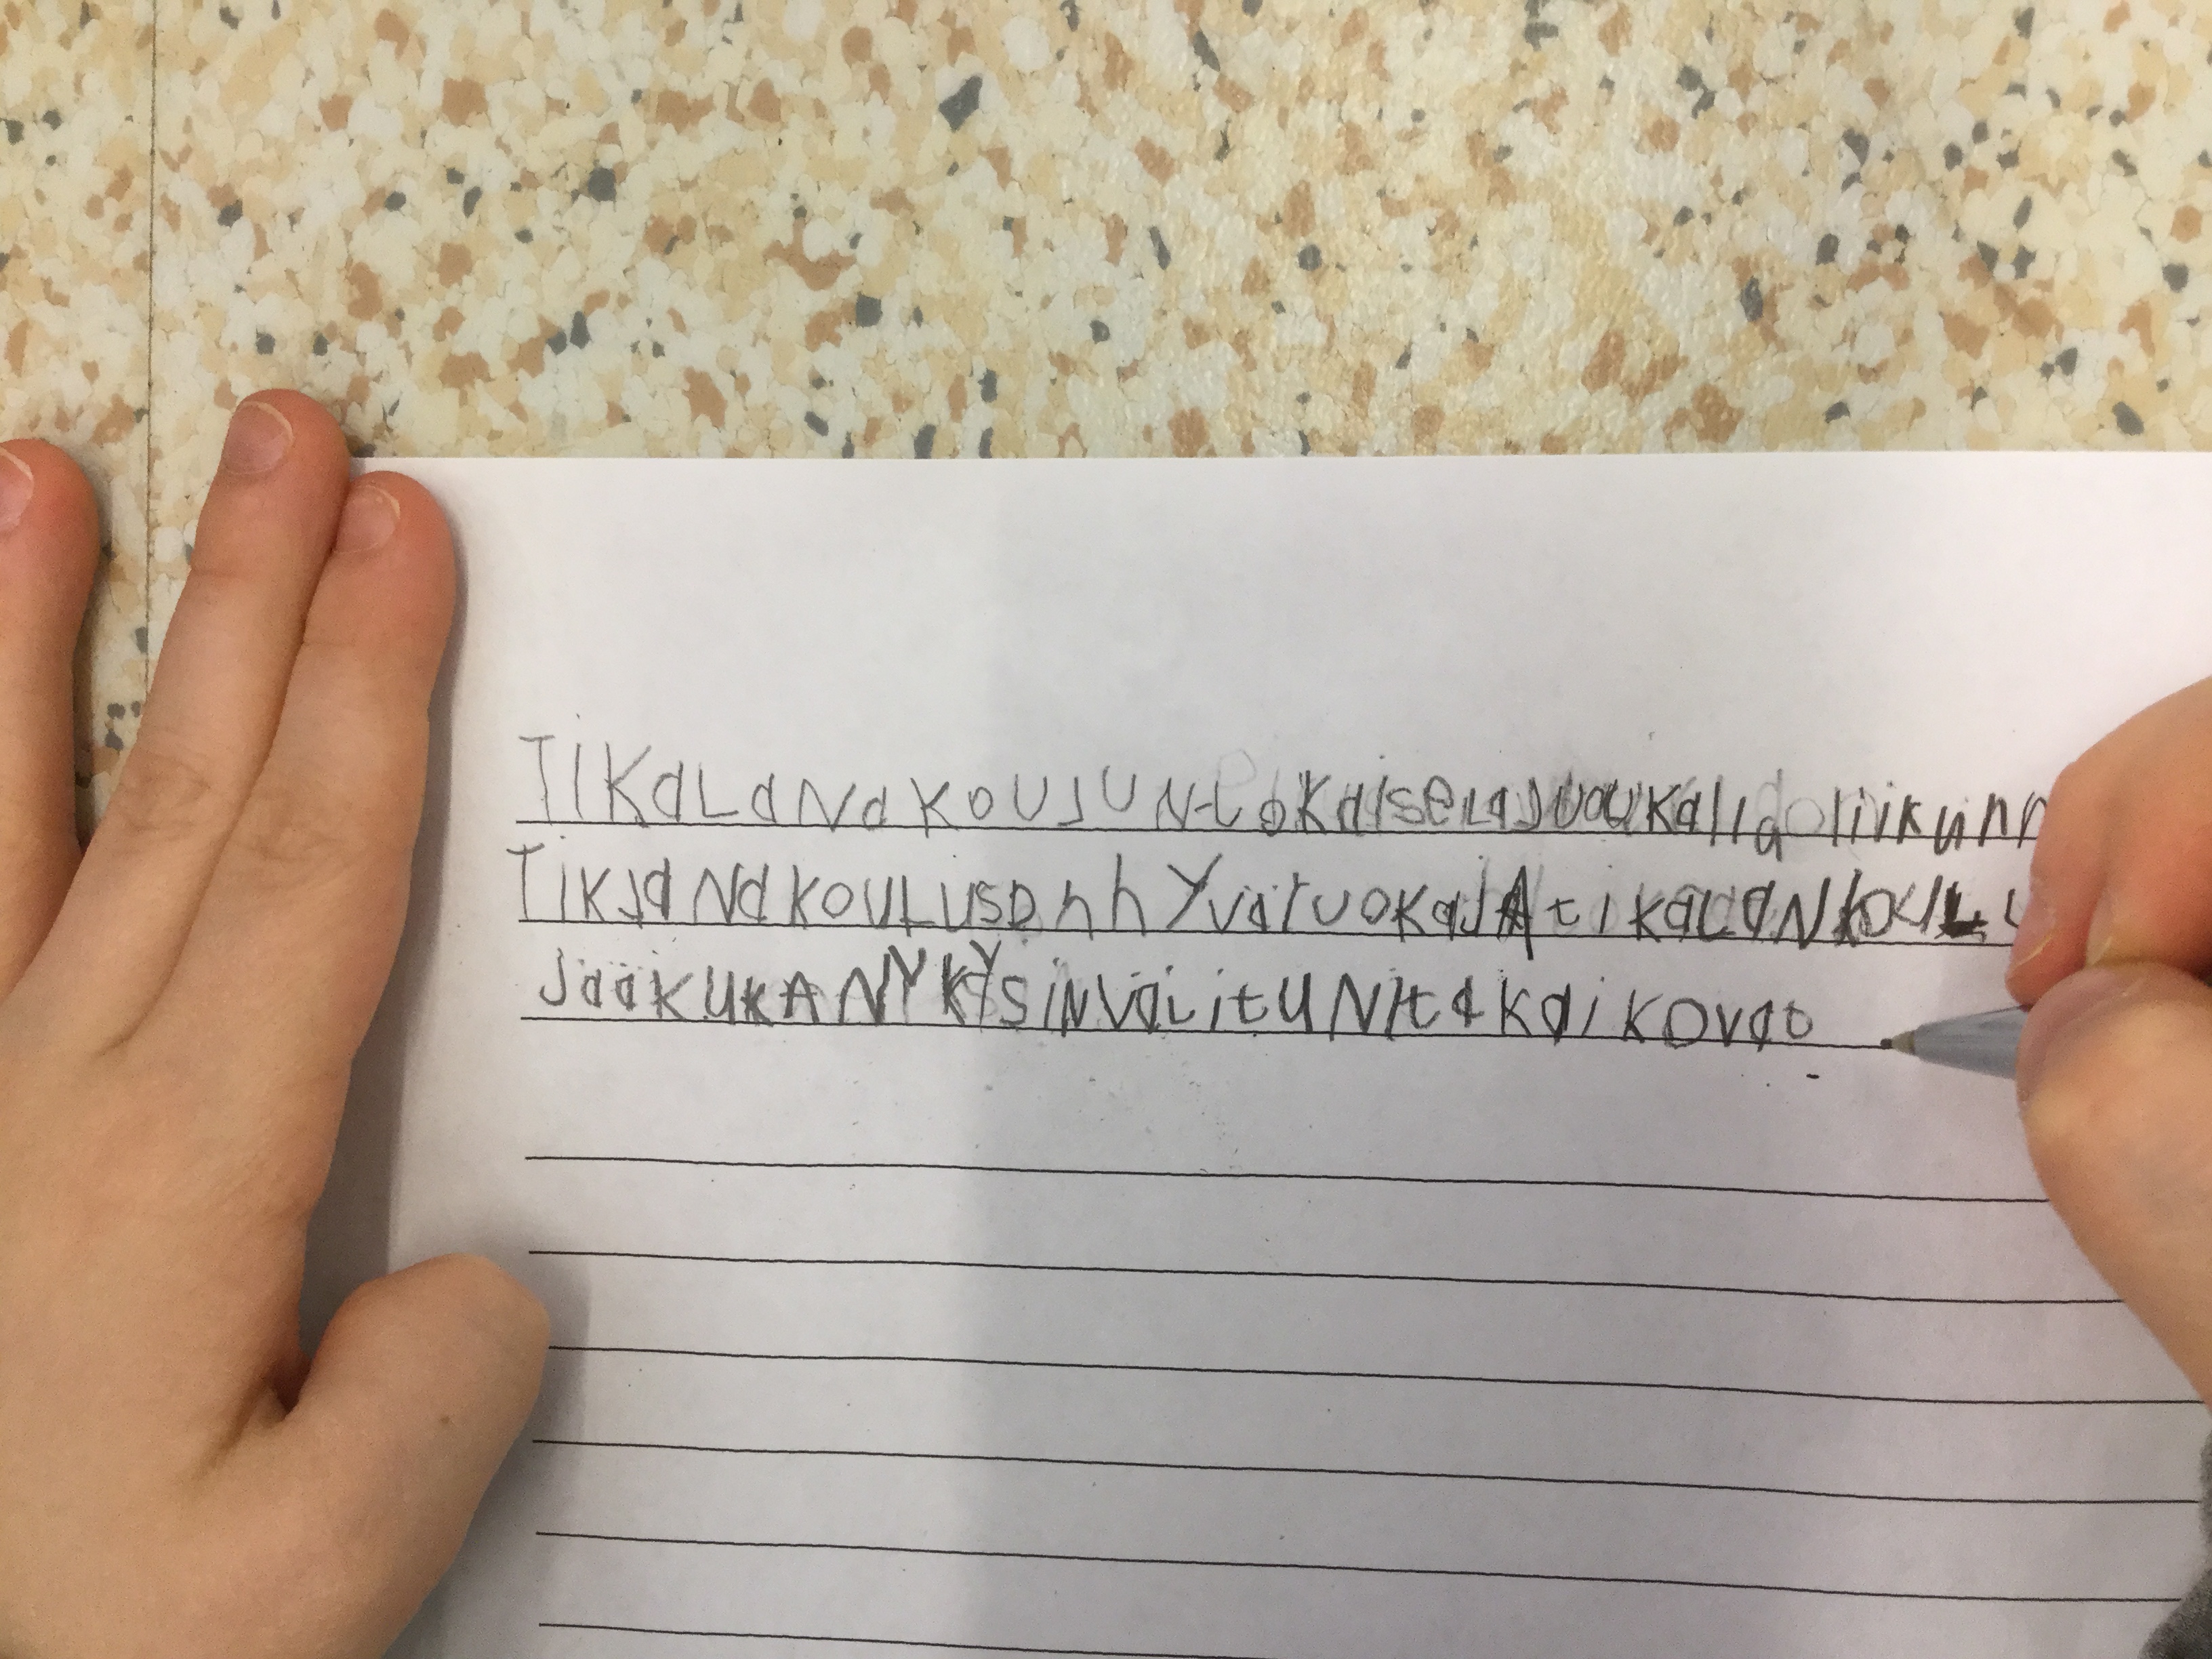 TIKaLaNa KOUJUN-LoKaIseLaJuouKallaoliikunn
TiKJaNa KOULUSOn hYväruoKaJA tikaLaNKOULu
JääKUKANYKYSiNVäLitUNitaKaiKOVao